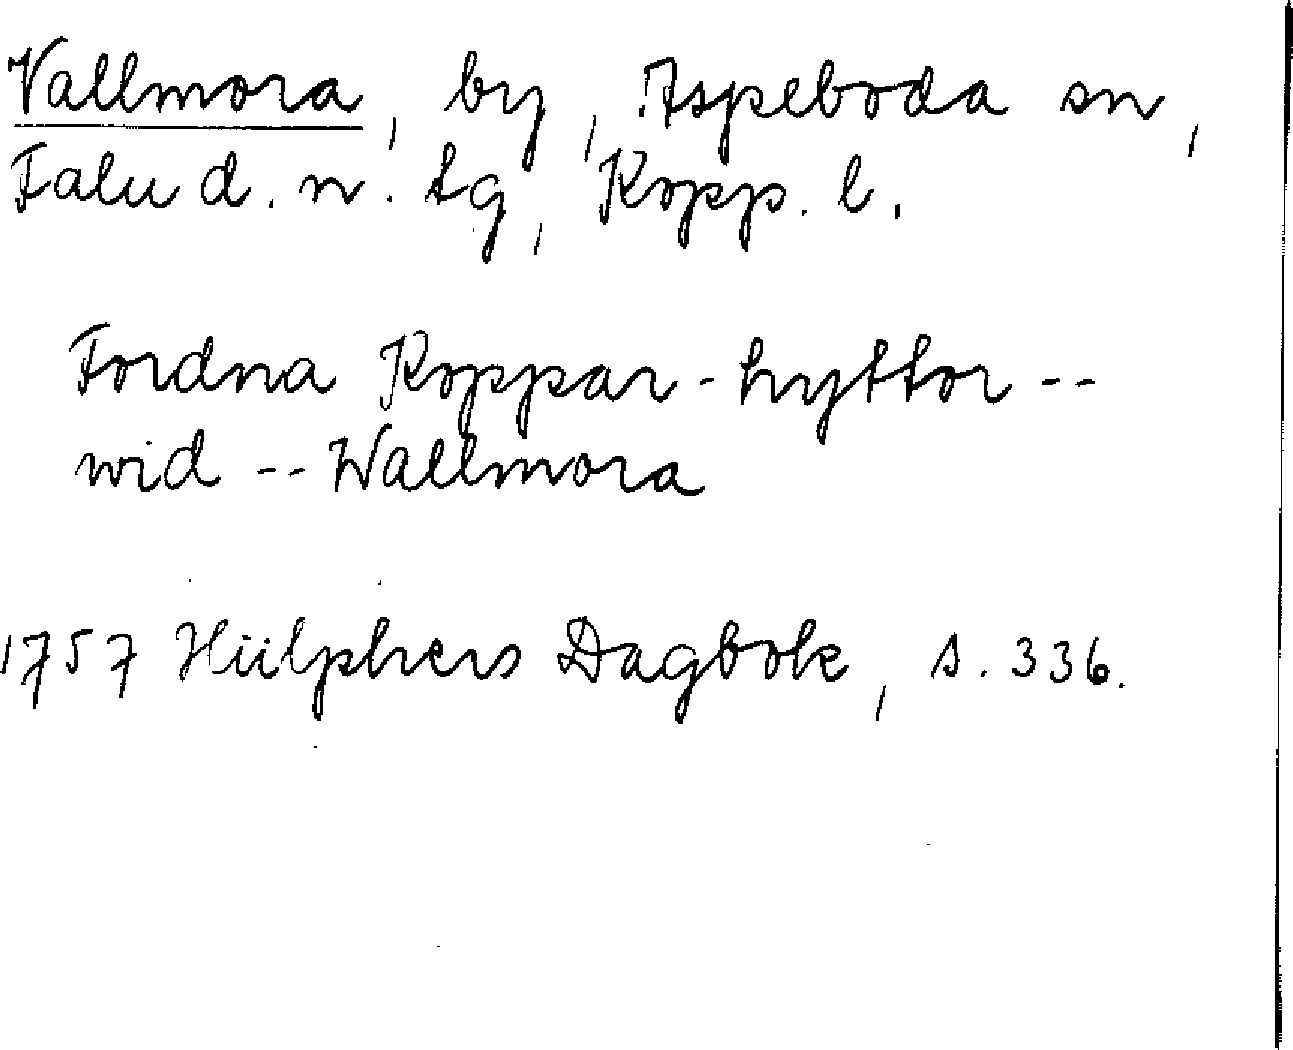 Vallmora, by, Aspeboda sn,
Falu d. n. tg, Kopp. l.
Fordna Koppar-hyttor --
wid -- Wallmora
1757 Hülphers Dagbok, s. 336.